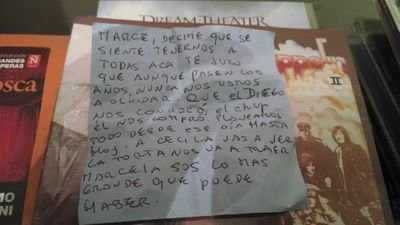 DREAM THEATER
COLECCIÓN
GRANDES
ÓPERAS
N
OSCA
MO
NI
II
MARCE, DECINE QUE SE
SIENTE TENERNOS A
TODAS ACA TE JURO
QUE AUNQUE PASEN LOS
AÑOS, NUNCA NOS VAMOS
A OLVIDAR QUE EL DIEGO
NOS CONVOCÓ, EL
ÉL NOS COMPRÓ, PLANEAMOS
TODO DESDE ESE DÍA HASTA
HOY. A CECILA VAS A VER
LA TORTA NOS VA A TRAER
MARCELA SOS LO MAS
GRANDE QUE PUEDE
HABER.